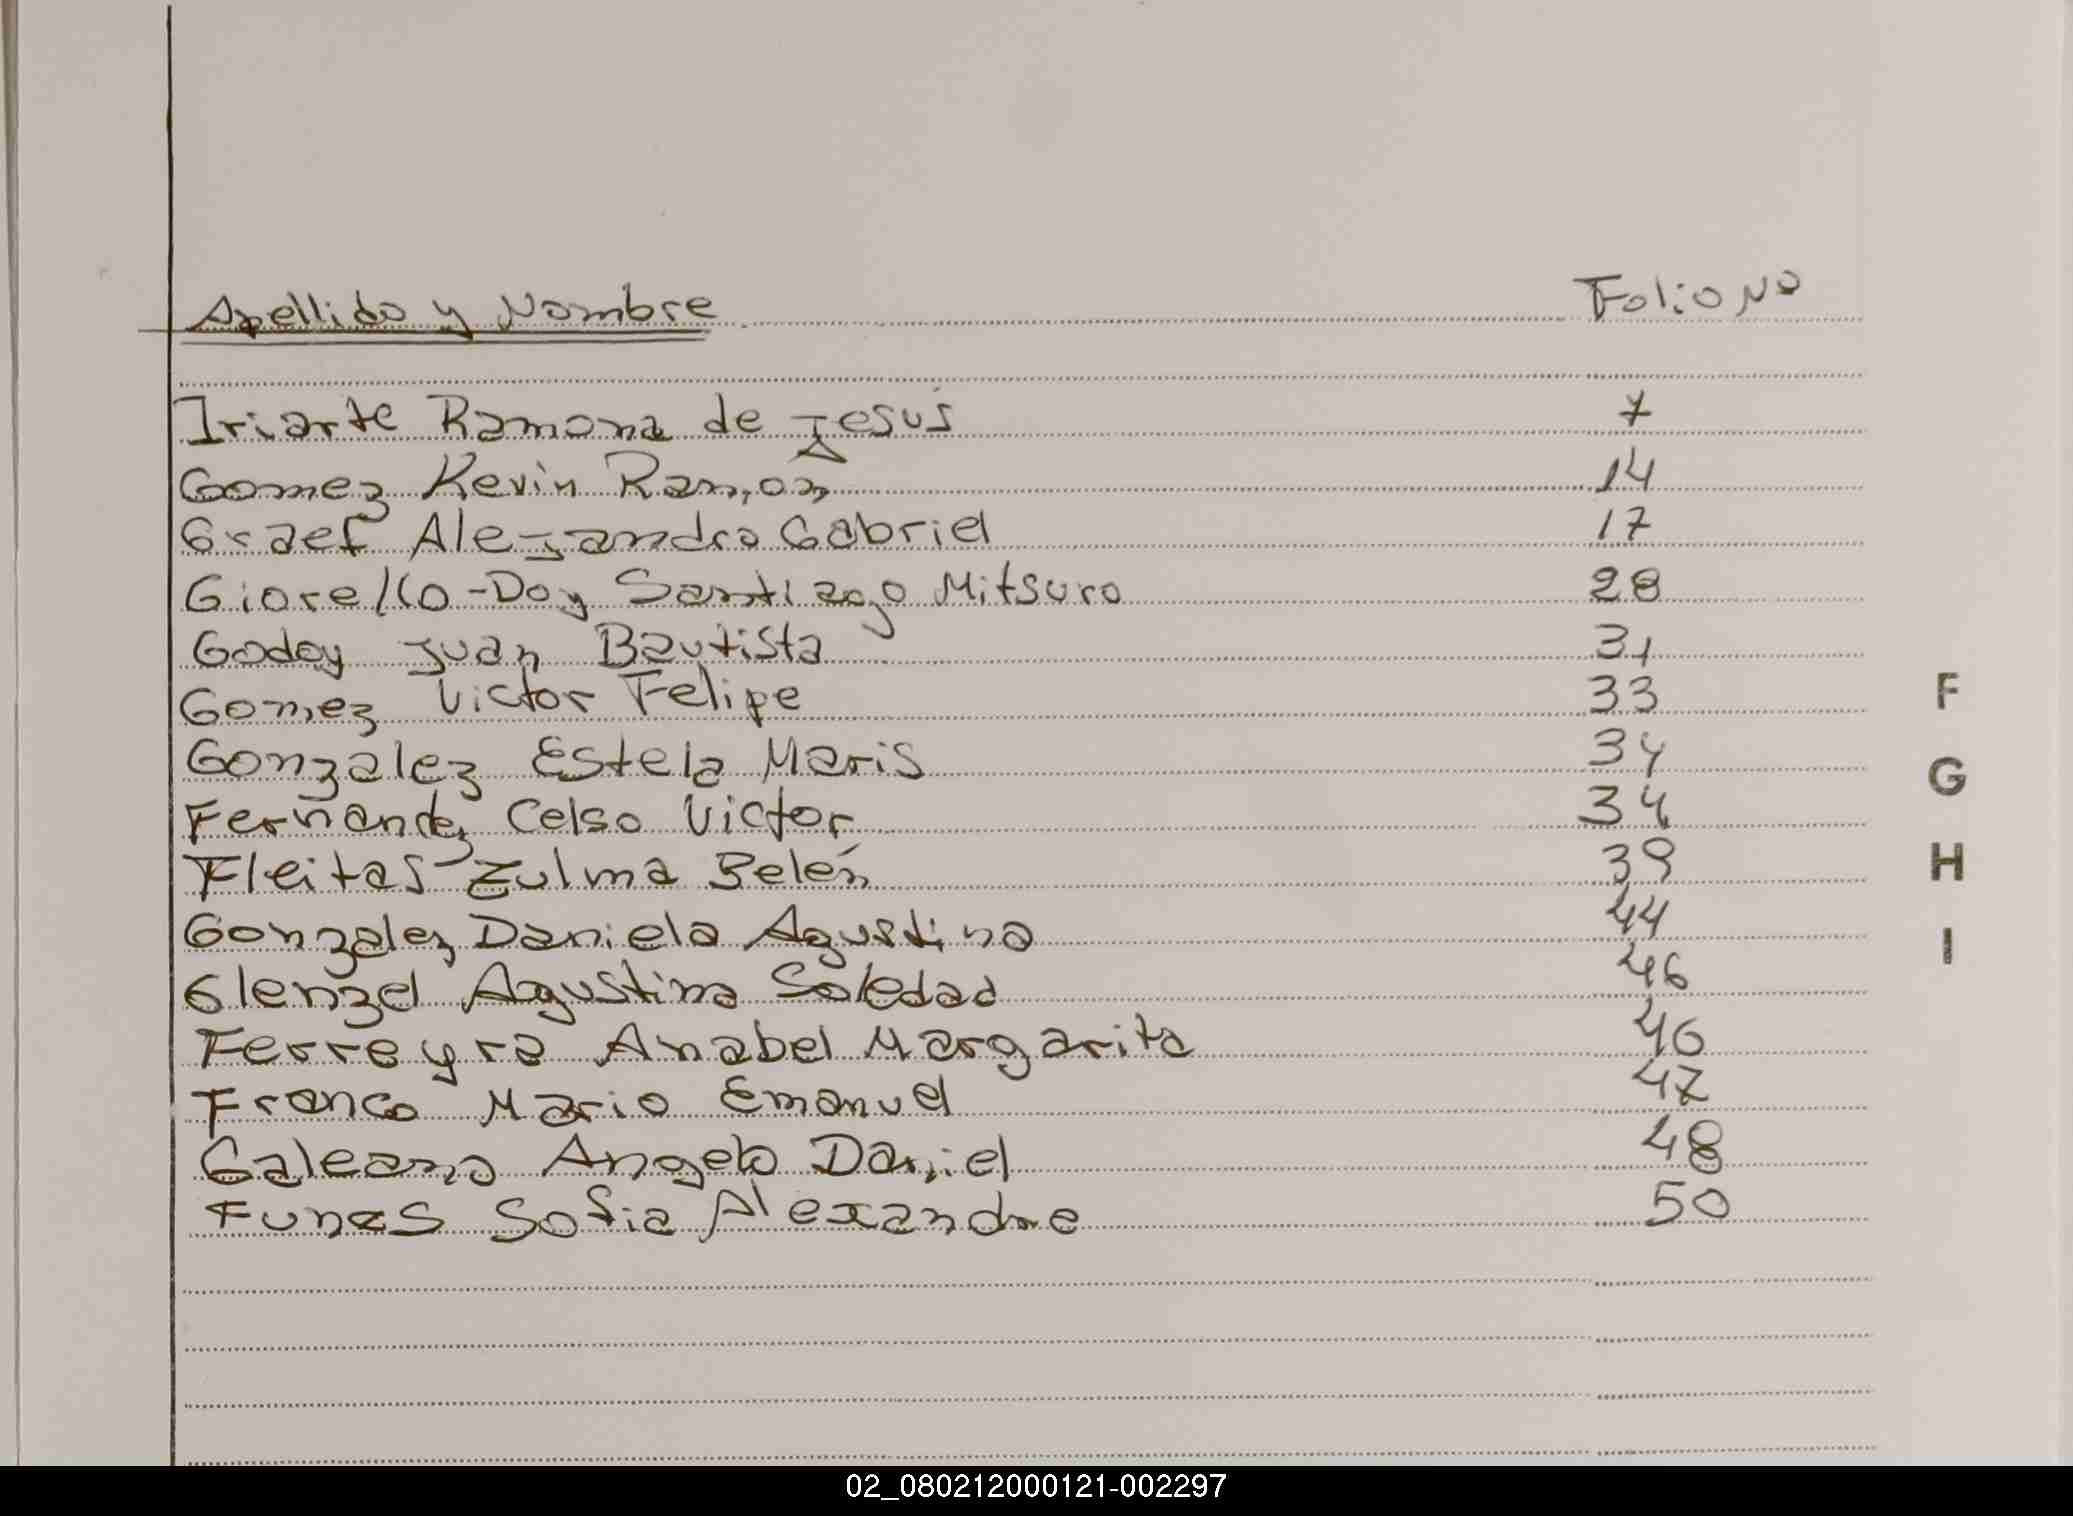 Apellido y Nombre Folio No
Iriarte Ramona de Jesús 7
Gomez Kevin Ramón 14
Graef Alejandro Gabriel 17
Giorello-Doy Santiago Mitsuro 28
Godoy Juan Bautista 31
Gomez Victor Felipe 33
F
Gonzalez Estela Maris 34
G
Fernandez Celso Victor 34
Fleitas Zulma Belén 39
H
Gonzalez Daniela Agustina 44
I
Glenzel Agustina Soledad 46
Ferreyra Anabel Margarita 46
Franco Mario Emanuel 47
Galeano Angelo Daniel 48
Funes Sofia Alexandre 50
02_080212000121-002297